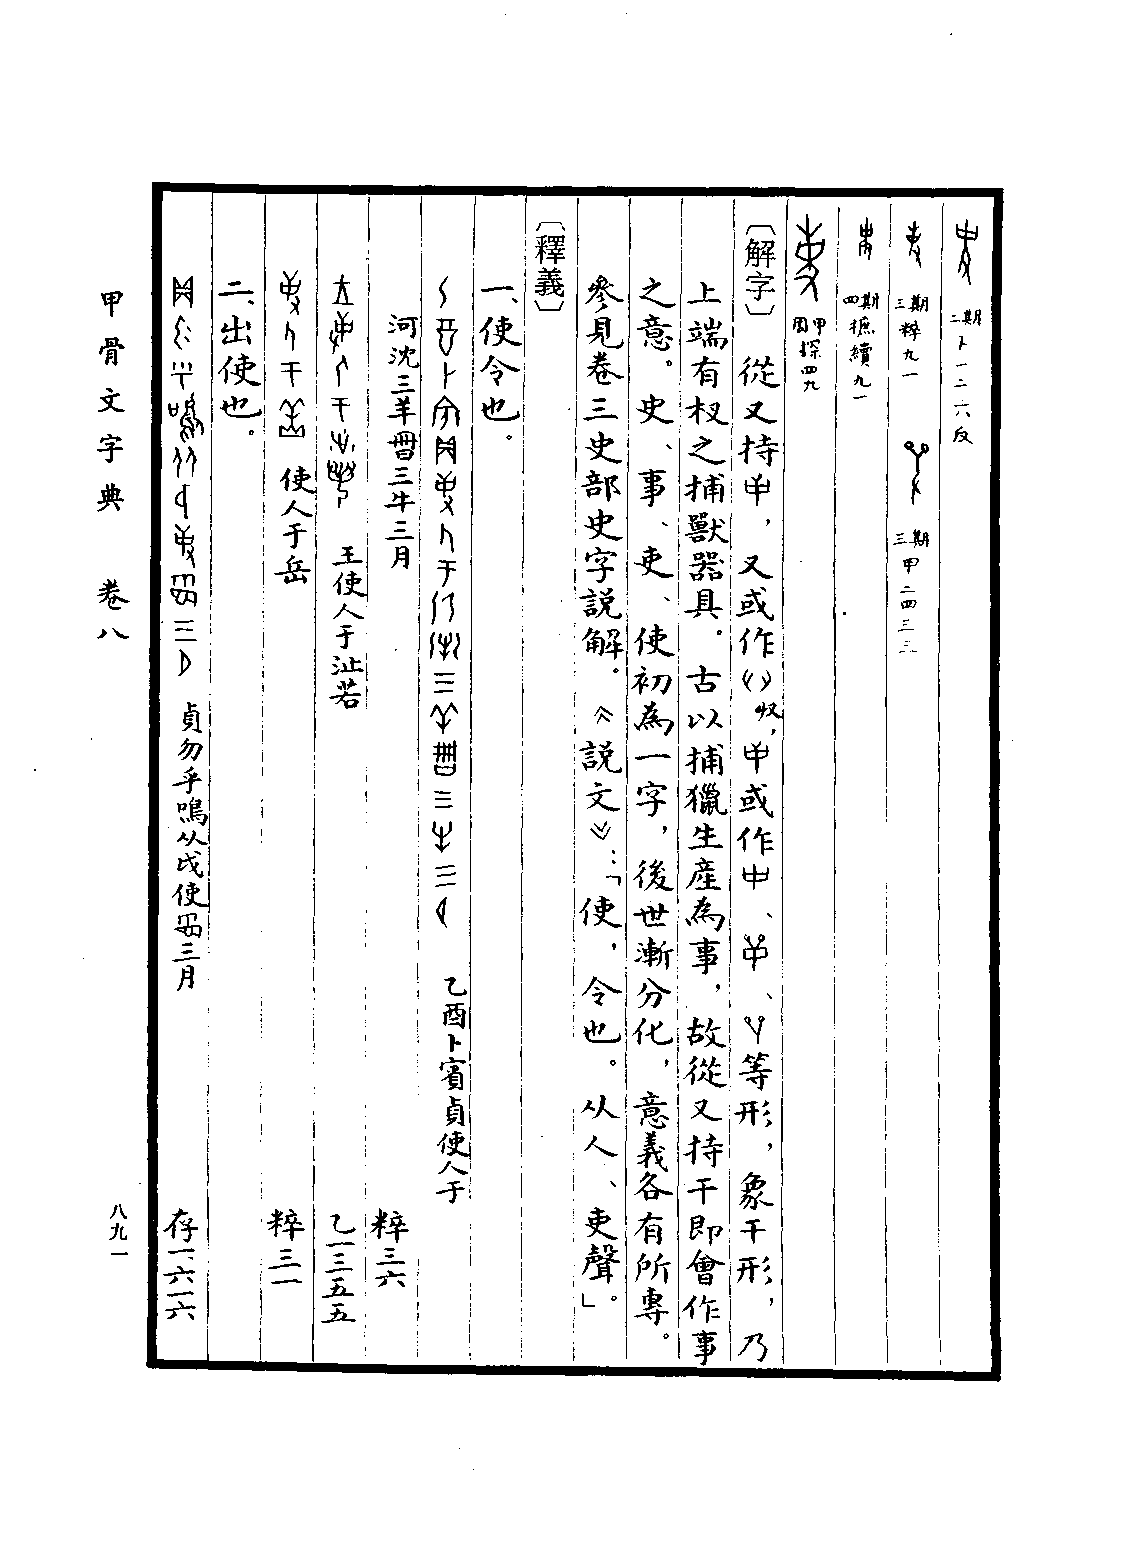 二期卜一二六反
三期粹九一 三期甲二四三三
四期摭續九一
周甲探四九
〔解字〕 從又持，又或作収，或作、、等形，象干形，乃
上端有杈之捕獸器具。古以捕獵生產為事，故從又持干即會作事
之意。史、事、吏、使初為一字，後世漸分化，意義各有所專。
參見卷三史部史字說解。《說文》：「使，令也。从人、吏聲。」
〔釋義〕
一、使令也。
乙酉卜賓貞使人于
河沈三羊𠕋三牛三月 粹三六
王使人于沚若 乙一三五五
使人于岳 粹三一
二、出使也。
貞勿乎鳴从戉使三月 存一、六一六
甲骨文字典 卷八
八九一